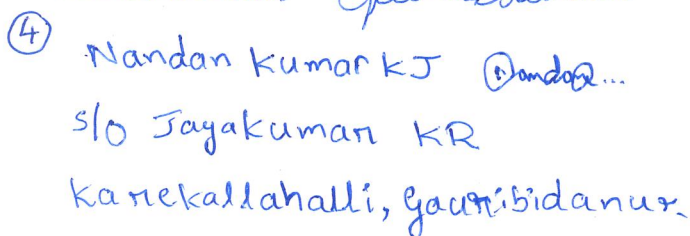 ④ Nandan Kumar KJ
S/o Jayakumar KR
Karekallahalli, Gauribidanur.